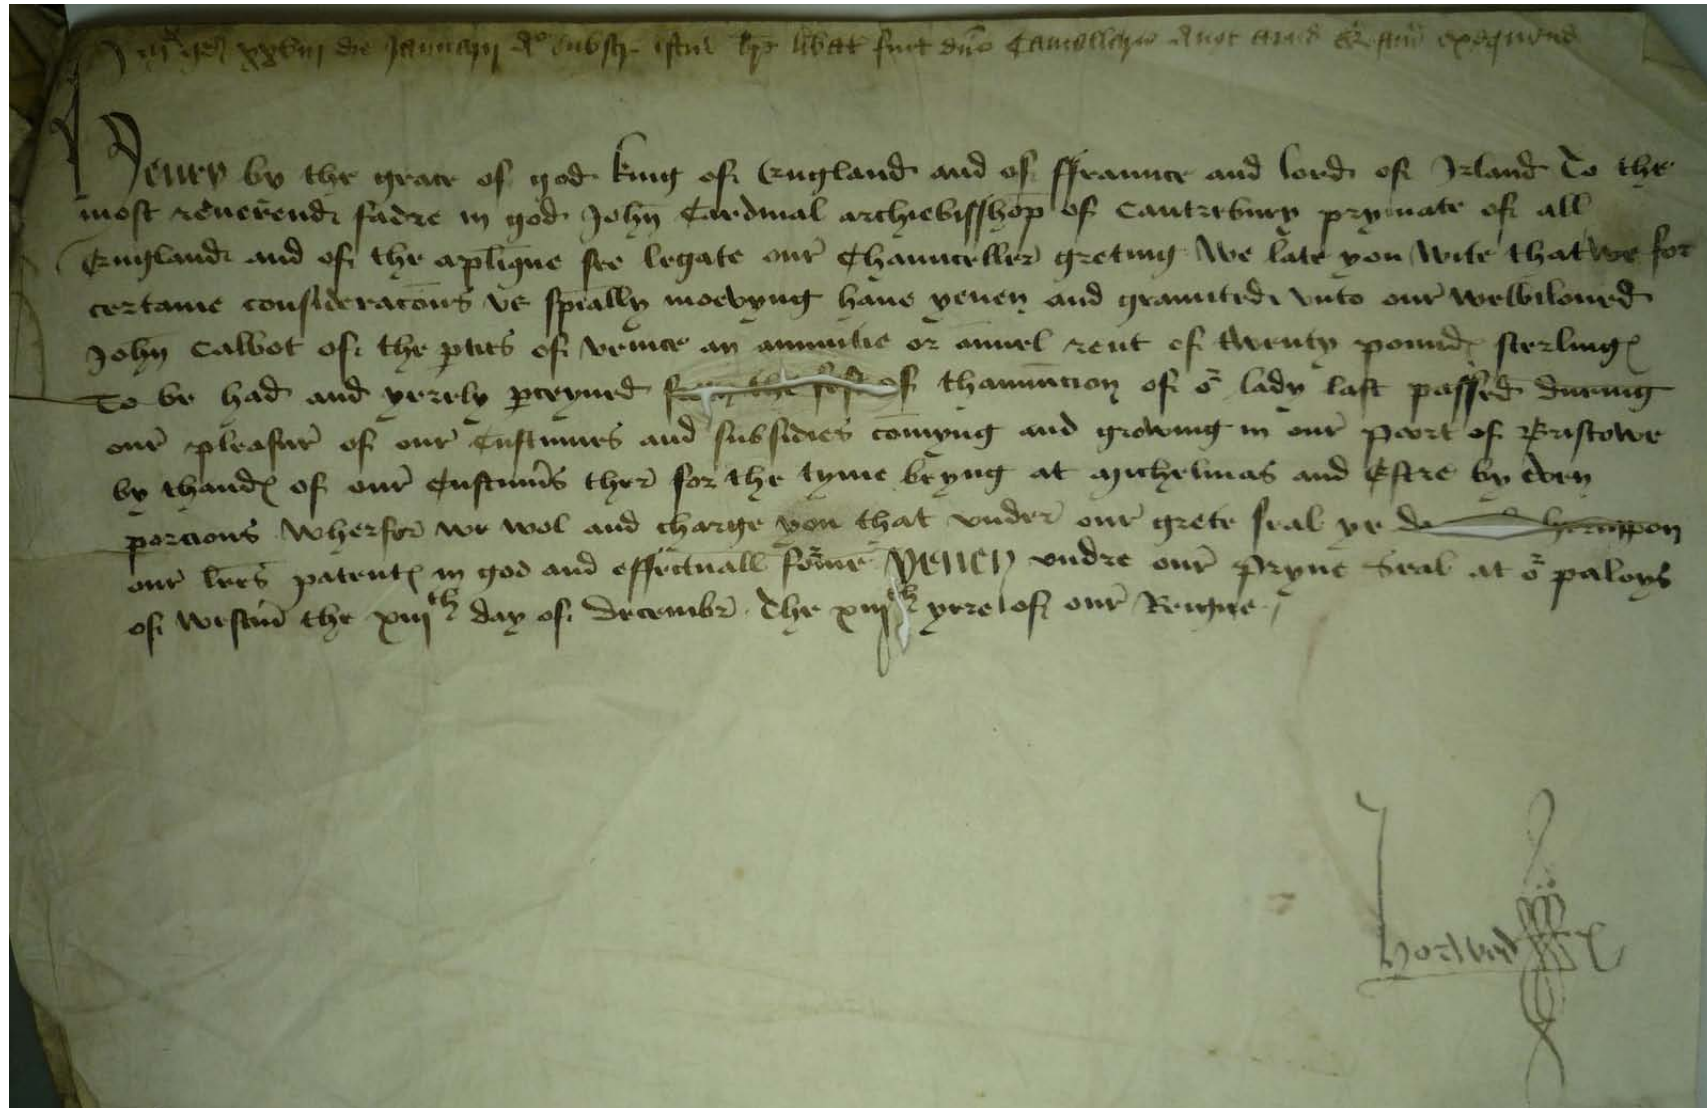 die Januarij A° subscr istud bre libat fuit dno Cancellario Angl apud exequend
Henry by the grace of god king of England and of ffraunce and lord of Irland To the
most reuerend fadre in god John Cardinal archiebisshop of Cantrebury prymate of all
England and of the aplique see legate our Chaunceller greting We late you wite that we for
certaine consideracons vs spially moevyng haue yeuen and graunted vnto our welbiloued
John Calbot of the ptes of Venice an annuitie or annuel rent of twenty pound sterling
To be had and yerely pceyued from the fest of thanunciacion of or lady last passed during
our pleasur of our Custumes and subsidies comyng and growing in our Poort of Bristowe
by thand of our Custumrs ther for the tyme beyng at Michelmas and Estre by even
porcions Wherfor we wol and charge you that vnder our grete seal ye do heruppon
our lres patent in god and effectuall forme Yeuen vndre our Pryue Seal at or paloys
of Westm the xiijth day of decembr The xiijth yere of our Reigne
Horwod